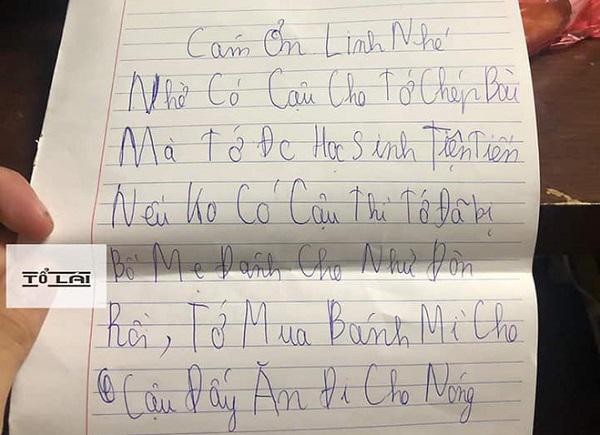 Cảm Ơn Linh Nhé
Nhờ Có Cậu Cho Tớ Chép Bài
Mà Tớ Đc Học Sinh Tiên Tiến
Nếu Ko Có Cậu Thì Tớ Đã bị
Bố Mẹ Đánh Cho Nhừ Đòn
Rồi, Tớ Mua Bánh Mì Cho
Cậu Đấy Ăn Đi Cho Nóng
TỔ LÁI